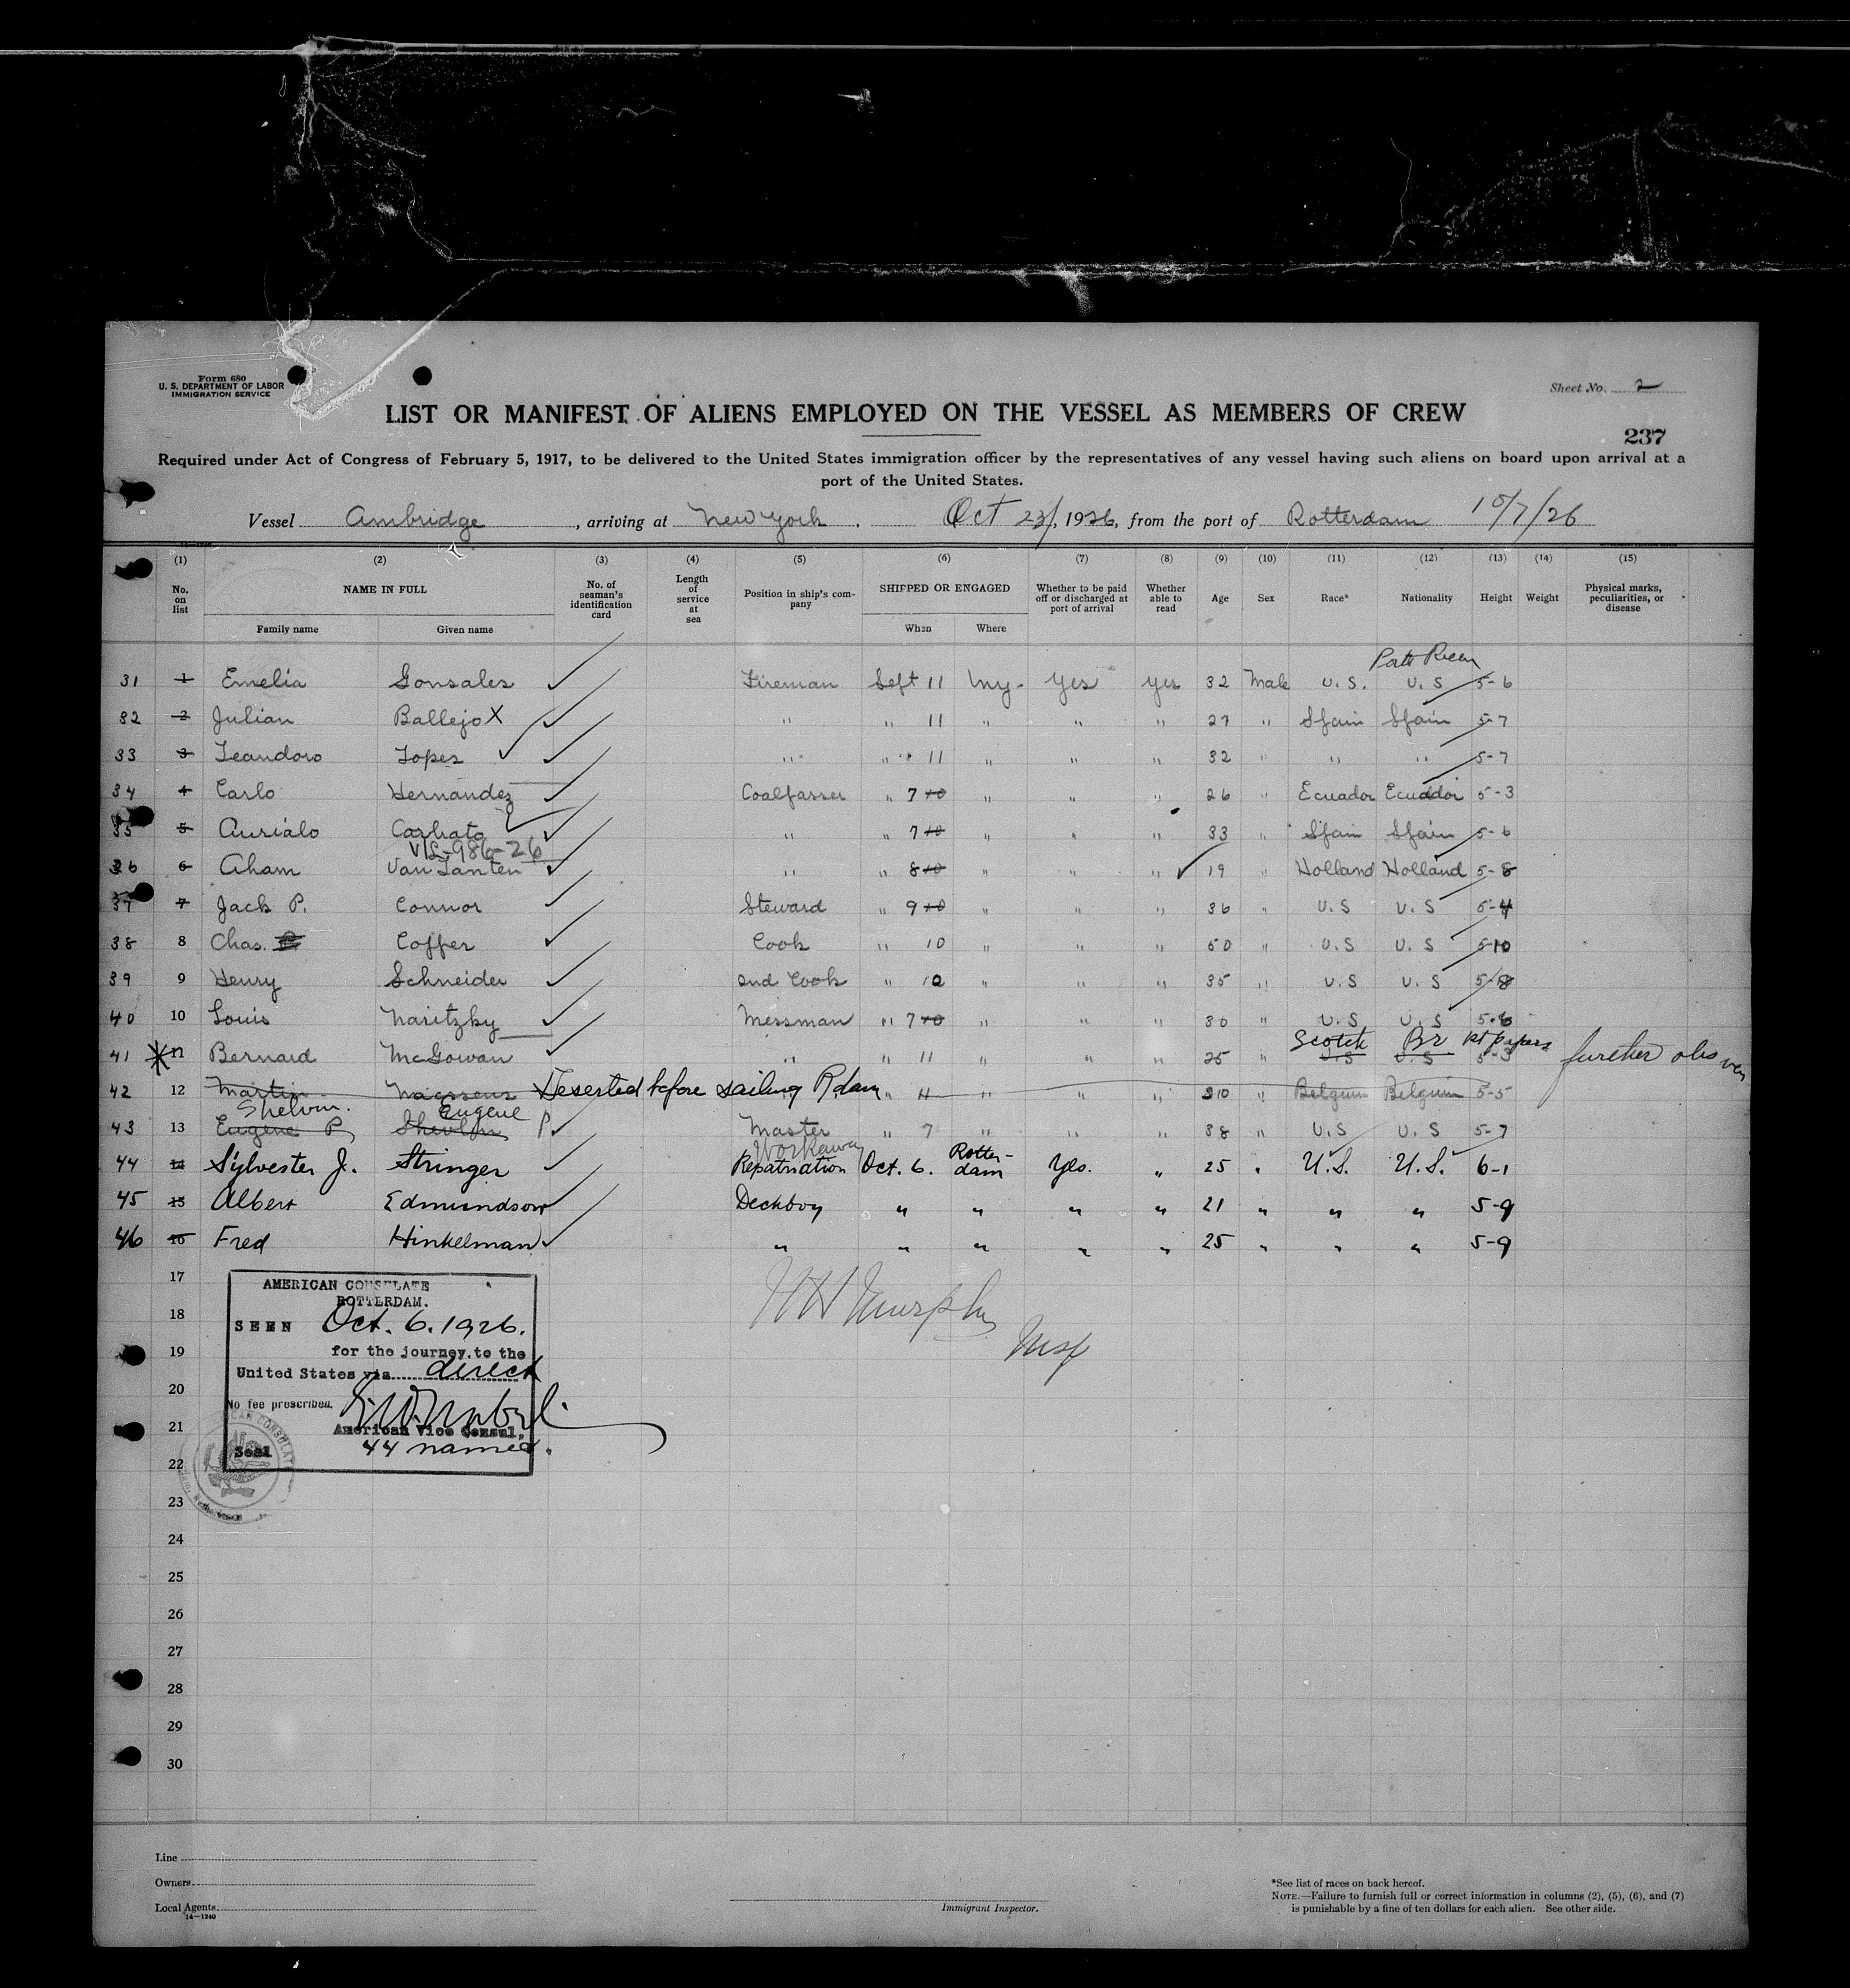 Form 680
U. S. DEPARTMENT OF LABOR
IMMIGRATION SERVICE
Sheet No. 2
LIST OR MANIFEST OF ALIENS EMPLOYED ON THE VESSEL AS MEMBERS OF CREW
237
Required under Act of Congress of February 5, 1917, to be delivered to the United States immigration officer by the representatives of any vessel having such aliens on board upon arrival at a
port of the United States.
Vessel Ambridge, arriving at New York. Oct 23/, 1926, from the port of Rotterdam 10/7/26
(1) (2) (3) (4) (5) (6) (7) (8) (9) (10) (11) (12) (13) (14) (15)
No. on list NAME IN FULL No. of seaman's identification card Length of service at sea Position in ship's company SHIPPED OR ENGAGED Whether to be paid off or discharged at port of arrival Whether able to read Age Sex Race* Nationality Height Weight Physical marks, peculiarities, or disease
Family name Given name When Where
Porto Rican
31 1 Emelia Gonsales Fireman Sept 11 N.Y. Yes Yes 32 Male U.S. U.S 5-6
32 2 Julian Ballejo X " " 11 " " " 27 " Spain Spain 5-7
33 3 Leandoro Lopez " " 11 " " " 32 " " " 5-7
34 4 Carlo Hernandez Coalpasser " 7 10 " " " 26 " Ecuador Ecuador 5-3
35 5 Aurialo Carbato " " 7 10 " " " 33 " Spain Spain 5-6
V/S-986-26
36 6 Aham Van Tanten " " 8 10 " " " 19 " Holland Holland 5-8
37 7 Jack P. Connor Steward " 9 10 " " " 36 " U.S U.S 5-4
38 8 Chas. Coffer Cook " 10 " " " 50 " U.S U.S 5-10
39 9 Henry Schneider 2nd Cook " 10 " " " 35 " U.S U.S 5-8
40 10 Louis Naritzky Messman " 7 10 " " " 30 " U.S U.S 5-6
Scotch Br 1st papers
41 11 Bernard McGowan " " 11 " " " 25 " U.S U.S 5-3 further obs
42 12 Martin Deserted before sailing R.dam " 11 " " " " Belgium Belgium 5-5
Shelvin. Eugene
43 13 Eugene P Shevlin P Master " 7 " " " 38 " U.S U.S 5-7
Workaway
44 14 Sylvester J. Stringer Repatriation Oct. 6. Rotterdam Yes. " 25 " U.S. U.S. 6-1
45 15 Albert Edmundson Deckboy " " " " 21 " " " 5-9
46 16 Fred Hinkelman " " " " " 25 " " " 5-9
17
18
19
20
21
22
23
24
25
26
27
28
29
30
AMERICAN CONSULATE
ROTTERDAM.
SEEN Oct. 6. 1926.
for the journey to the
United States via direct
No fee prescribed.
American Vice Consul,
Seal 44 names.
W H Murphy
Insp
Line
Owners
Local Agents
14—1240
Immigrant Inspector.
*See list of races on back hereof.
NOTE.—Failure to furnish full or correct information in columns (2), (5), (6), and (7)
is punishable by a fine of ten dollars for each alien. See other side.